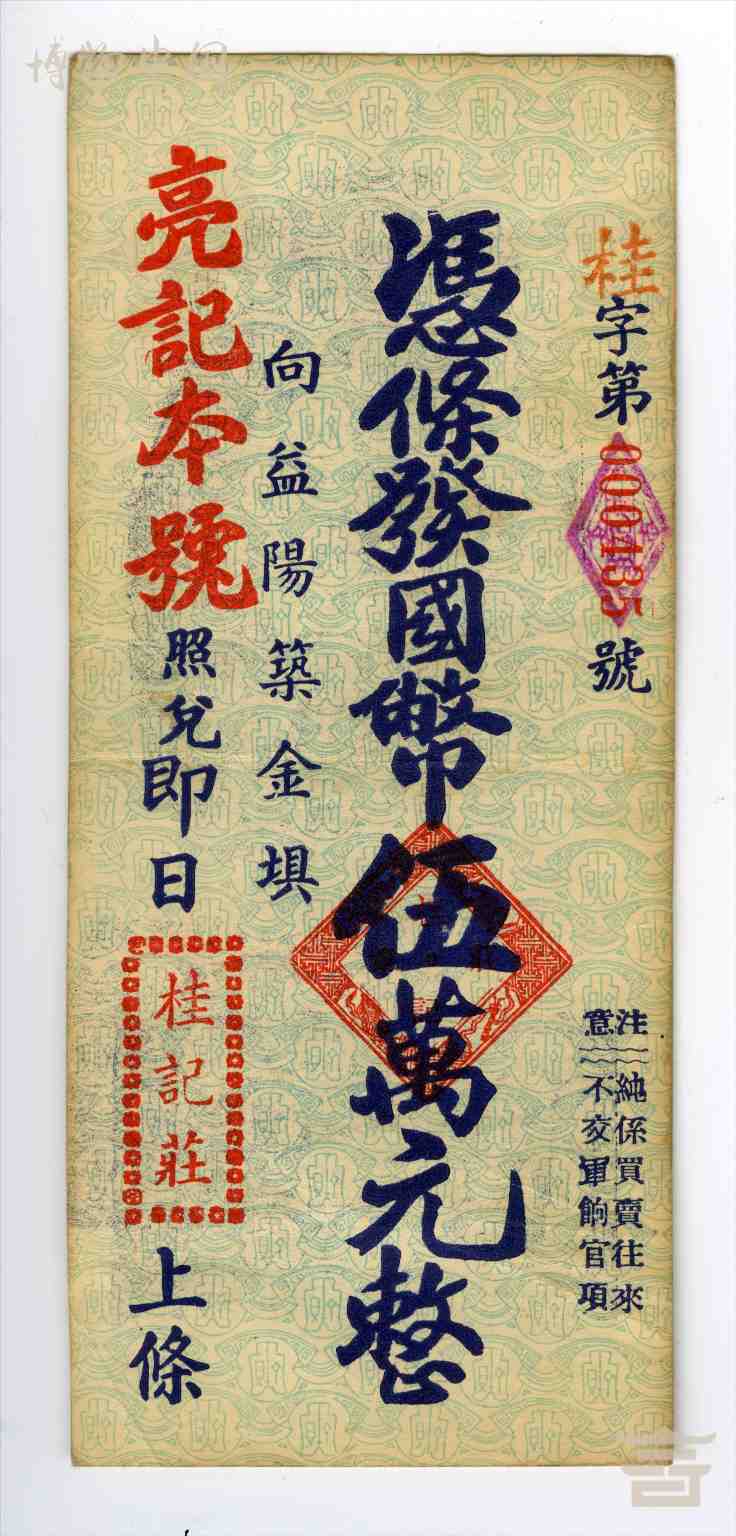 桂字第000435號
注意
純係買賣往來
不交軍餉官項
憑條發國幣伍萬元整
向益陽築金垻
亮記本號照兌即日
桂記莊
上條